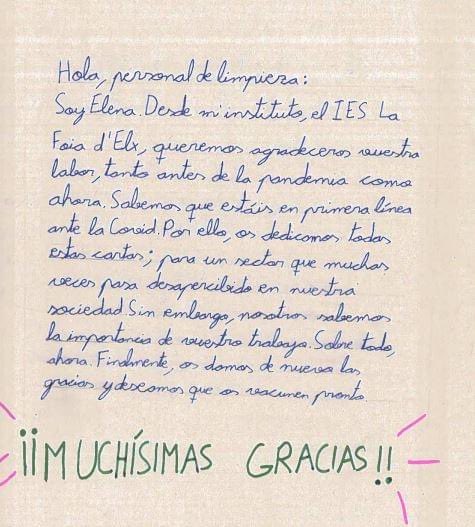 Hola, personal de limpieza:
Soy Elena. Desde mi instituto, el IES La
Foia d'Elx, queremos agradeceros vuestra
labor, tanto antes de la pandemia como
ahora. Sabemos que estáis en primera línea
ante la Covid. Por ello, os dedicamos todas
estas cartas; para un sector que muchas
veces pasa desapercibido en nuestra
sociedad. Sin embargo, nosotros sabemos
la importancia de vuestro trabajo. Sobre todo,
ahora. Finalmente, os damos de nuevo las
gracias y deseamos que os vacunen pronto.
¡¡MUCHÍSIMAS GRACIAS!!